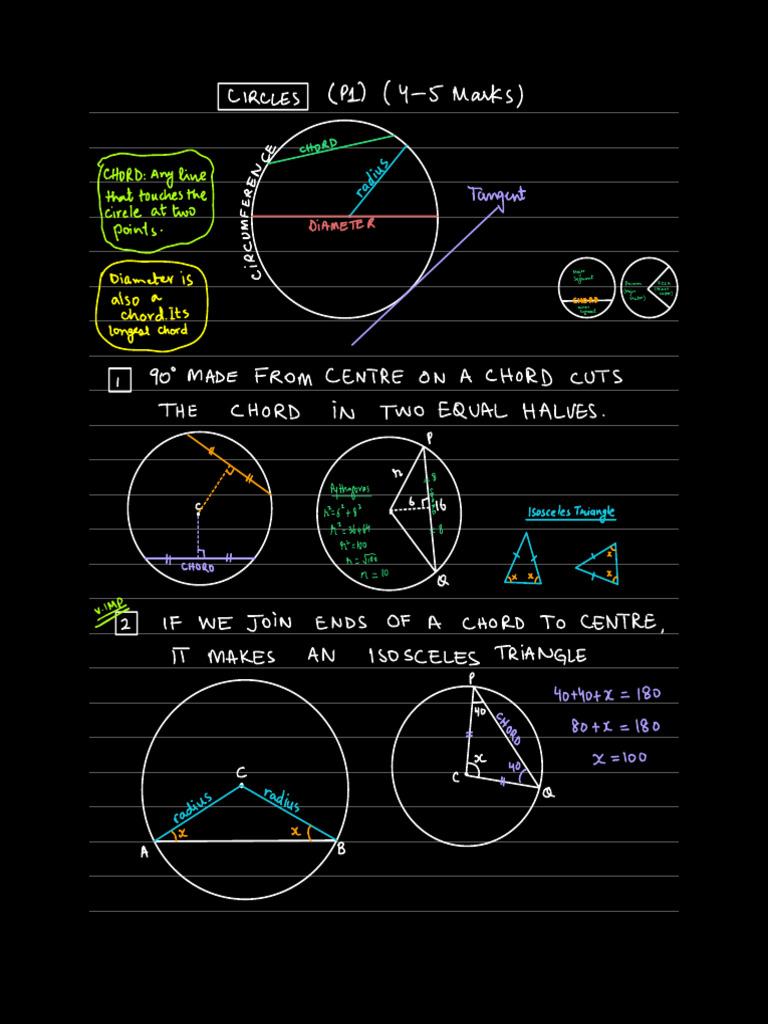 CIRCLES (P1) (4-5 Marks)
CHORD: Any line
that touches the
circle at two
points.
Diameter is
also a
chord. Its
longest chord
CIRCUMFERENCE
CHORD
radius
DIAMETER
Tangent
Major
Segment
CHORD
Minor
Segment
(Major
Sector)
(Minor
Sector)
1 90° MADE FROM CENTRE ON A CHORD CUTS
THE CHORD IN TWO EQUAL HALVES.
C
CHORD
Pythagoras
r²=6²+8²
r²=36+64
r²=100
r=√100
r=10
P
r
8
6
16
8
Q
Isosceles Triangle
x x
x
x
V.IMP
2 IF WE JOIN ENDS OF A CHORD TO CENTRE,
IT MAKES AN ISOSCELES TRIANGLE
C
radius radius
x x
A B
P
40
CHORD
x
40
C
Q
40+40+x=180
80+x=180
x=100